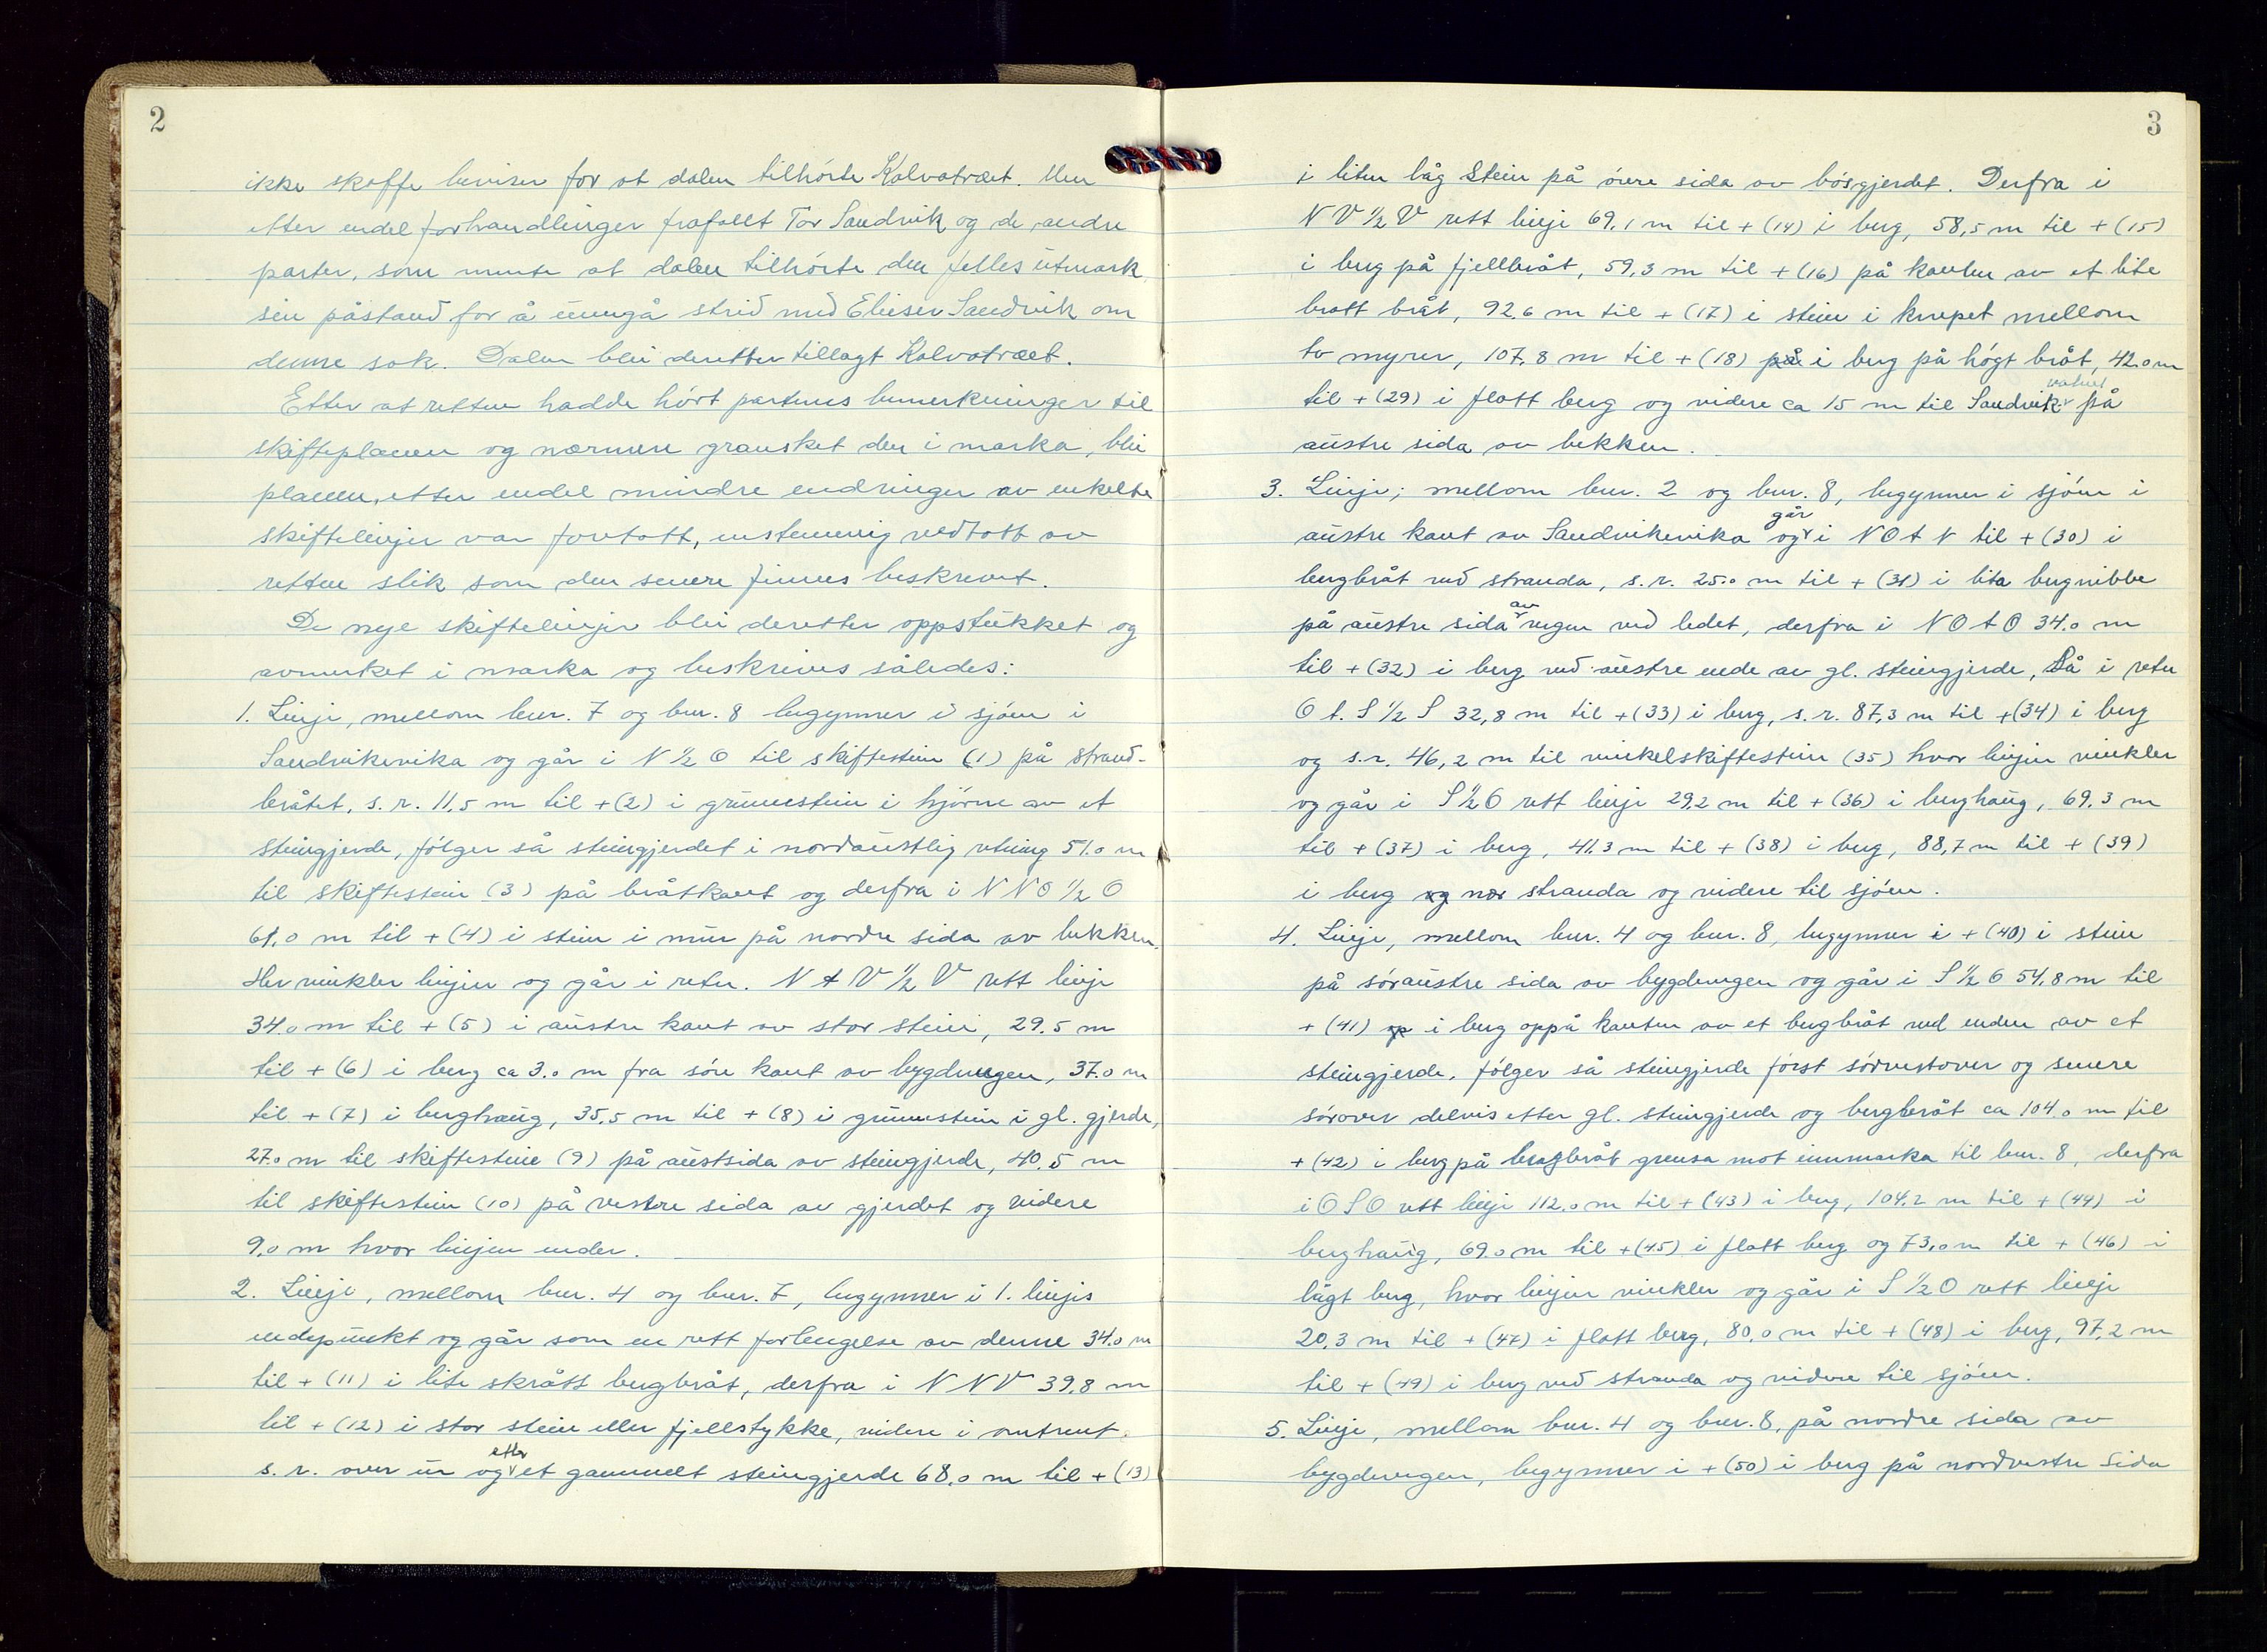 2
ikke skaffe beviser for at dalen tilhørte Kalvatræet. Men
etter endel forhandlinger frafallt Tor Sandvik og de andre
parter, som mente at dalen tilhørte den felles utmark
sin påstand for å unngå strid med Elieser Sandvik om
denne sak. Dalen blei deretter tillagt Kalvatræet.
Etter at retten hadde hørt partenes bemerkninger til
skifteplanen og nærmere gransket den i marka, blei
planen, etter endel mindre endringer av enkelte
skiftelinjer var foretatt, enstemmig vedtatt av
retten slik som den senere finnes beskrevet.
De nye skiftelinjer blei deretter oppstukket og
avmerket i marka og beskrives således:
1. Linje, mellom bnr. 7 og bnr. 8 begynner i sjøen i
Sandvikvika og går i N ½ O til skiftestein (1) på strand-
bråtet, s. r. 11,5 m til + (2) i grunnstein i hjørne av et
steingjerde, følger så steingjerdet i nordaustlig retning 51.0 m
til skiftestein (3) på bråtkant og derfra i N N O ½ O
61.0 m til + (4) i stein i mur på nordre sida av bekken.
Her vinkler linjen og går i retn. N t V ½ V rett linje
34.0 m til + (5) i austre kant av stor stein, 29.5 m
til + (6) i berg ca 3.0 m fra søre kant av bygdevegen, 37.0 m
til + (7) i berghaug, 35,5 m til + (8) i grunnstein i gl. gjerde,
27.0 m til skiftestein (9) på austsida av steingjerde, 40.5 m
til skiftestein (10) på vestre sida av gjerdet og videre
9.0 m hvor linjen ender.
2. Linje, mellom bnr. 4 og bnr. 7, begynner i 1. linjes
endepunkt og går som en rett forlengelse av denne 34.0 m
til + (11) i lite skrått bergbråt, derfra i N N V 39.8 m
til + (12) i stor stein eller fjellstykke, videre i omtrent
s. r. over ur og etter et gammelt steingjerde 68.0 m til + (13)
3
i liten låg stein på øvre sida av bøsgjerdet. Derfra i
N V ½ V rett linje 69,1 m til + (14) i berg, 58,5 m til + (15)
i berg på fjellbråt, 59,3 m til + (16) på kanten av et lite
bratt bråt, 92.6 m til + (17) i stein i knepet mellom
to myrer, 107.8 m til + (18) på i berg på høgt bråt, 42.0 m
til + (29) i flatt berg og videre ca 15 m til Sandvikvatnet på
austre sida av bekken.
3. Linje; mellom bnr. 2 og bnr. 8, begynner i sjøen i
austre kant av Sandvikvika og går i N O t N til + (30) i
bergbråt ved stranda, s. r. 25.0 m til + (31) i lita bergnibbe
på austre sida av vegen ved ledet, derfra i N O t O 34.0 m
til + (32) i berg ved austre ende av gl. steingjerde, Så i retn
O t. S ½ S 32,8 m til + (33) i berg, s. r. 87,3 m til + (34) i berg
og s. r. 46,2 m til vinkelskiftestein (35) hvor linjen vinkler
og går i S ½ O rett linje 29.2 m til + (36) i berghaug, 69.3 m
til + (37) i berg, 41.3 m til + (38) i berg, 88,7 m til + (39)
i berg og nær stranda og videre til sjøen.
4. Linje, mellom bnr. 4 og bnr. 8, begynner i + (40) i stein
på søraustre sida av bygdevegen og går i S ½ O 54.8 m til
+ (41) i berg oppå kanten av et bergbråt ved enden av et
steingjerde, følger så steingjerde først sørvestover og senere
sørover delvis etter gl. steingjerde og bergbråt ca 104.0 m til
+ (42) i berg på bergbråt grensa mot innmarka til bnr. 8, derfra
i O S O rett linje 112.0 m til + (43) i berg, 104.2 m til + (44) i
berghaug, 69.0 m til + (45) i flatt berg og 73,0 m til + (46) i
lågt berg, hvor linjen vinkler og går i S ½ O rett linje
20.3 m til + (47) i flatt berg, 80,0 m til + (48) i berg, 97,2 m
til + (49) i berg ved stranda og videre til sjøen.
5. Linje, mellom bnr. 4 og bnr. 8, på nordre sida av
bygdevegen, begynner i + (50) i berg på nordvestre sida